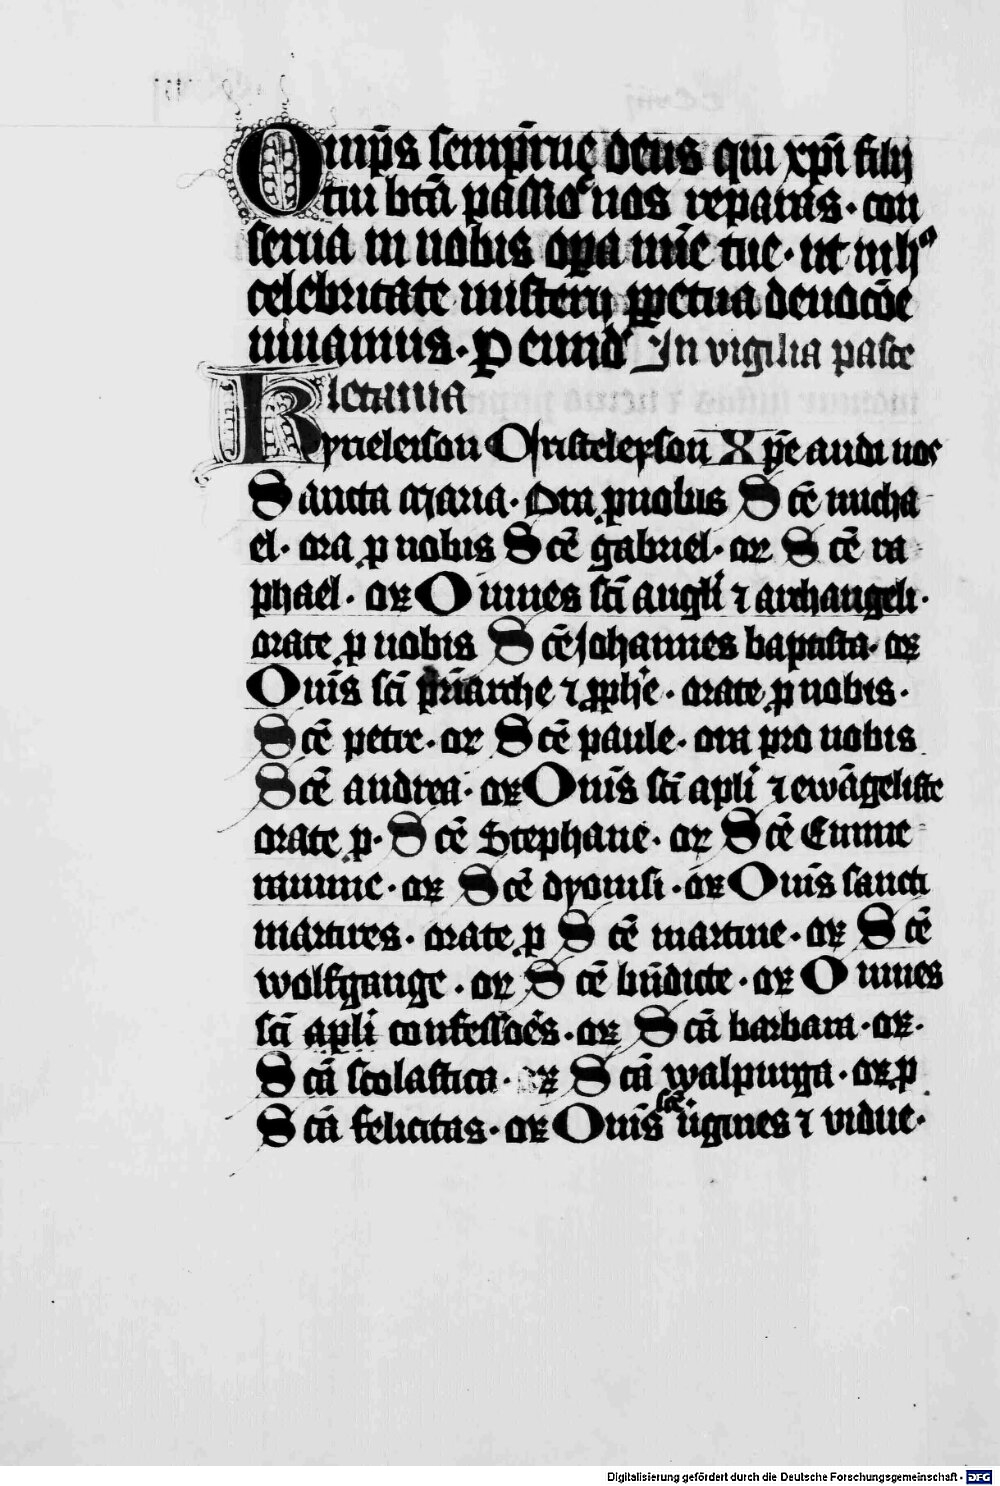 Omp̄s semp̄itnę deus qui xp̄i filij
tui btā passiōe nos reparas · con
serua in nobis opa mīe tue · ut in hͦ
celebritate misterij ꝑpetua deuocōe
uiuamus · P eund' In vigilia pasce
letania
Kyrieleison Cristeleyson Xp̄e audi nos
Sancta maria · Ora ꝓ nobis Scē micha
el · ora ꝓ nobis Scē gabriel · or Scē ra
phael · or Omnes scī angli ⁊ archangeli ·
orate ꝓ nobis Scē Johannes baptista · or
Om̄s scī pr̄iarche ⁊ ꝓphe · orate ꝓ nobis ·
Scē petre · or Scē paule · ora pro nobis
Scē andrea · or Om̄s scī apli ⁊ ewāgeliste
orate ꝓ · Scē Stephane · or Scē Emme
ramme · or Scē dyonisi · or Om̄s sancti
martires · orate ꝓ Scē martine · or Scē
wolfgange · or Scē bn̄dicte · or Omnes
scī apli confessoēs · or Scā barbara · or ·
Scā scolastica · or Scā walpurga · or ꝓ
Scā felicitas · or Om̄s scē uigines ⁊ vidue ·
Digitalisierung gefördert durch die Deutsche Forschungsgemeinschaft - DFG